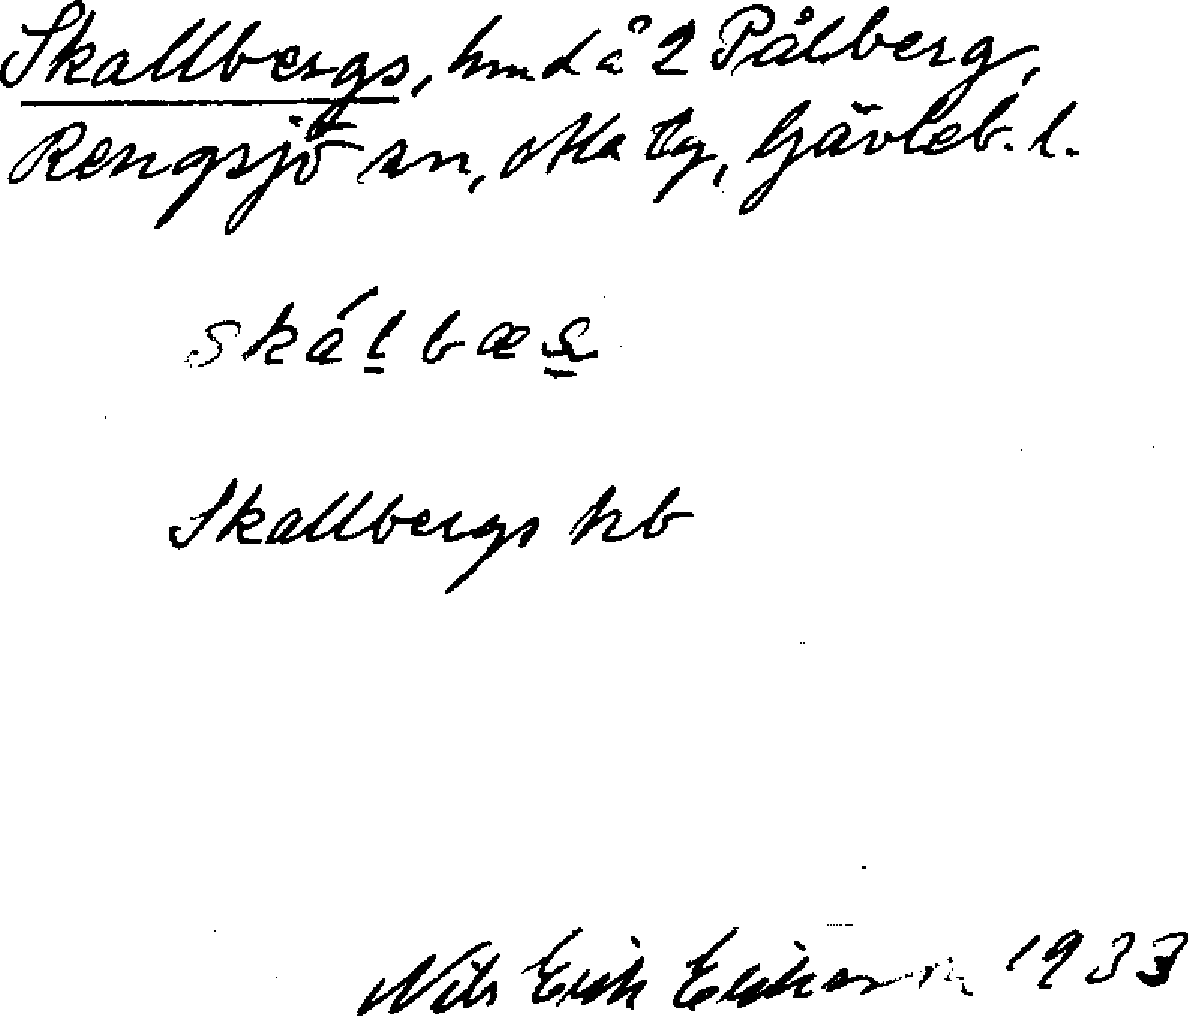 Skallbergs, hmd å 2 Pålsberg,
Rengsjö sn, Ala tg, Gävleb. l.
skálbæs
Skallbergs hb
Nils Erik Erikson 1933